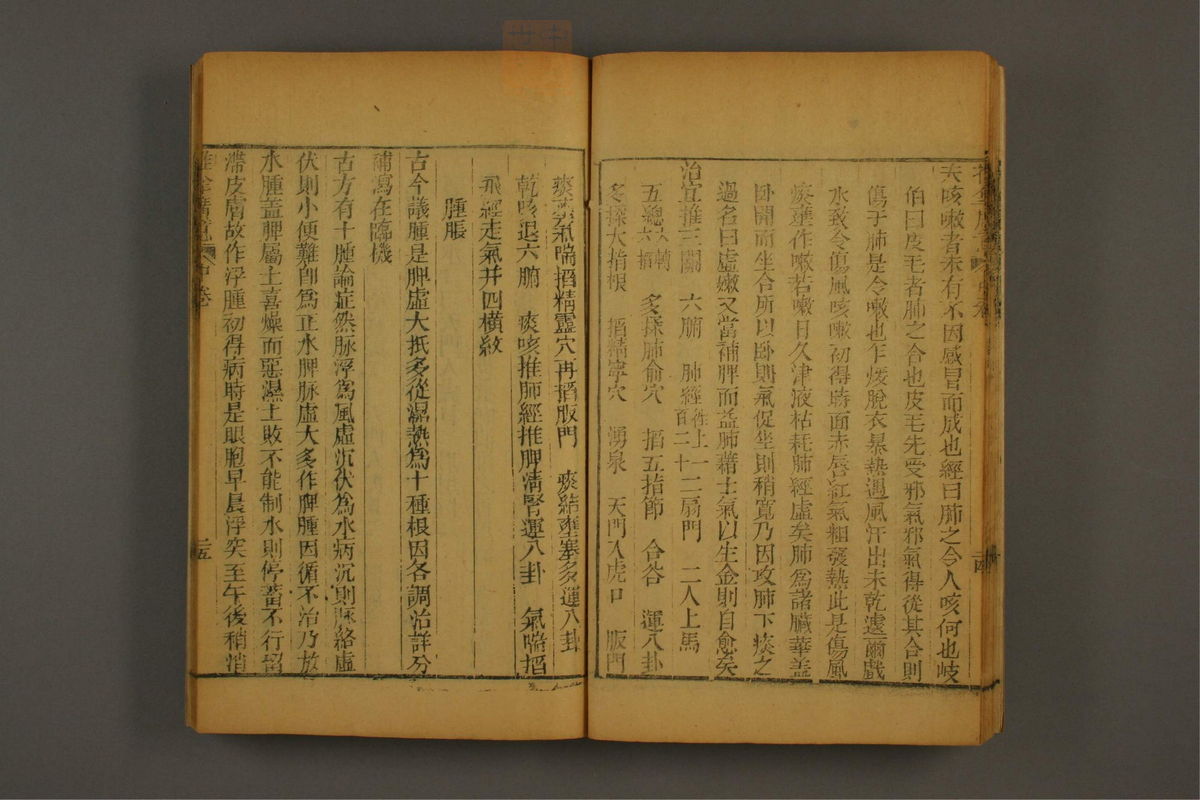 夫咳嗽者未有不因感冒而成也經曰肺之令人咳何也岐
伯曰皮毛者肺之合也皮毛先受邪氣邪氣得從其合則
傷于肺是令嗽也乍煖脫衣暴熱遇風汗出未乾遽爾戲
水致令傷風咳嗽初得時面赤唇紅氣粗發熱此是傷風
痰壅作嗽若嗽日久津液枯耗肺經虛矣肺為諸臟華蓋
卧開而坐合所以卧則氣促坐則稍寬乃因攻肺下痰之
過名曰虛嫩又當補脾而益肺藉土氣以生金則自愈矣
治宜推三關 六腑 肺經往上一百二十 二扇門 二人上馬
五總六轉六掐 多揉肺俞穴 掐五指節 合谷 運八卦
多揉大指根 掐精寧穴 湧泉 天門入虎口 版門
痰壅氣喘掐精靈穴再掐版門 痰結壅塞多運八卦
乾咳退六腑 痰咳推肺經推脾清腎運八卦 氣喘掐
飛經走氣并四橫紋
腫脹
古今議腫是脾虛大抵多從濕熱為十種根因各調治詳分
補瀉在臨機
古方有十腫論症然脉浮為風虛沉伏為水病沉則脉絡虛
伏則小便難即為正水脾脉虛大多作脾腫因循不治乃放
水腫蓋脾屬土喜燥而惡濕土敗不能制水則停畜不行留
滯皮膚故作浮腫初得病時是眼胞早晨浮突至午後稍消
推拿廣意 中卷
二五